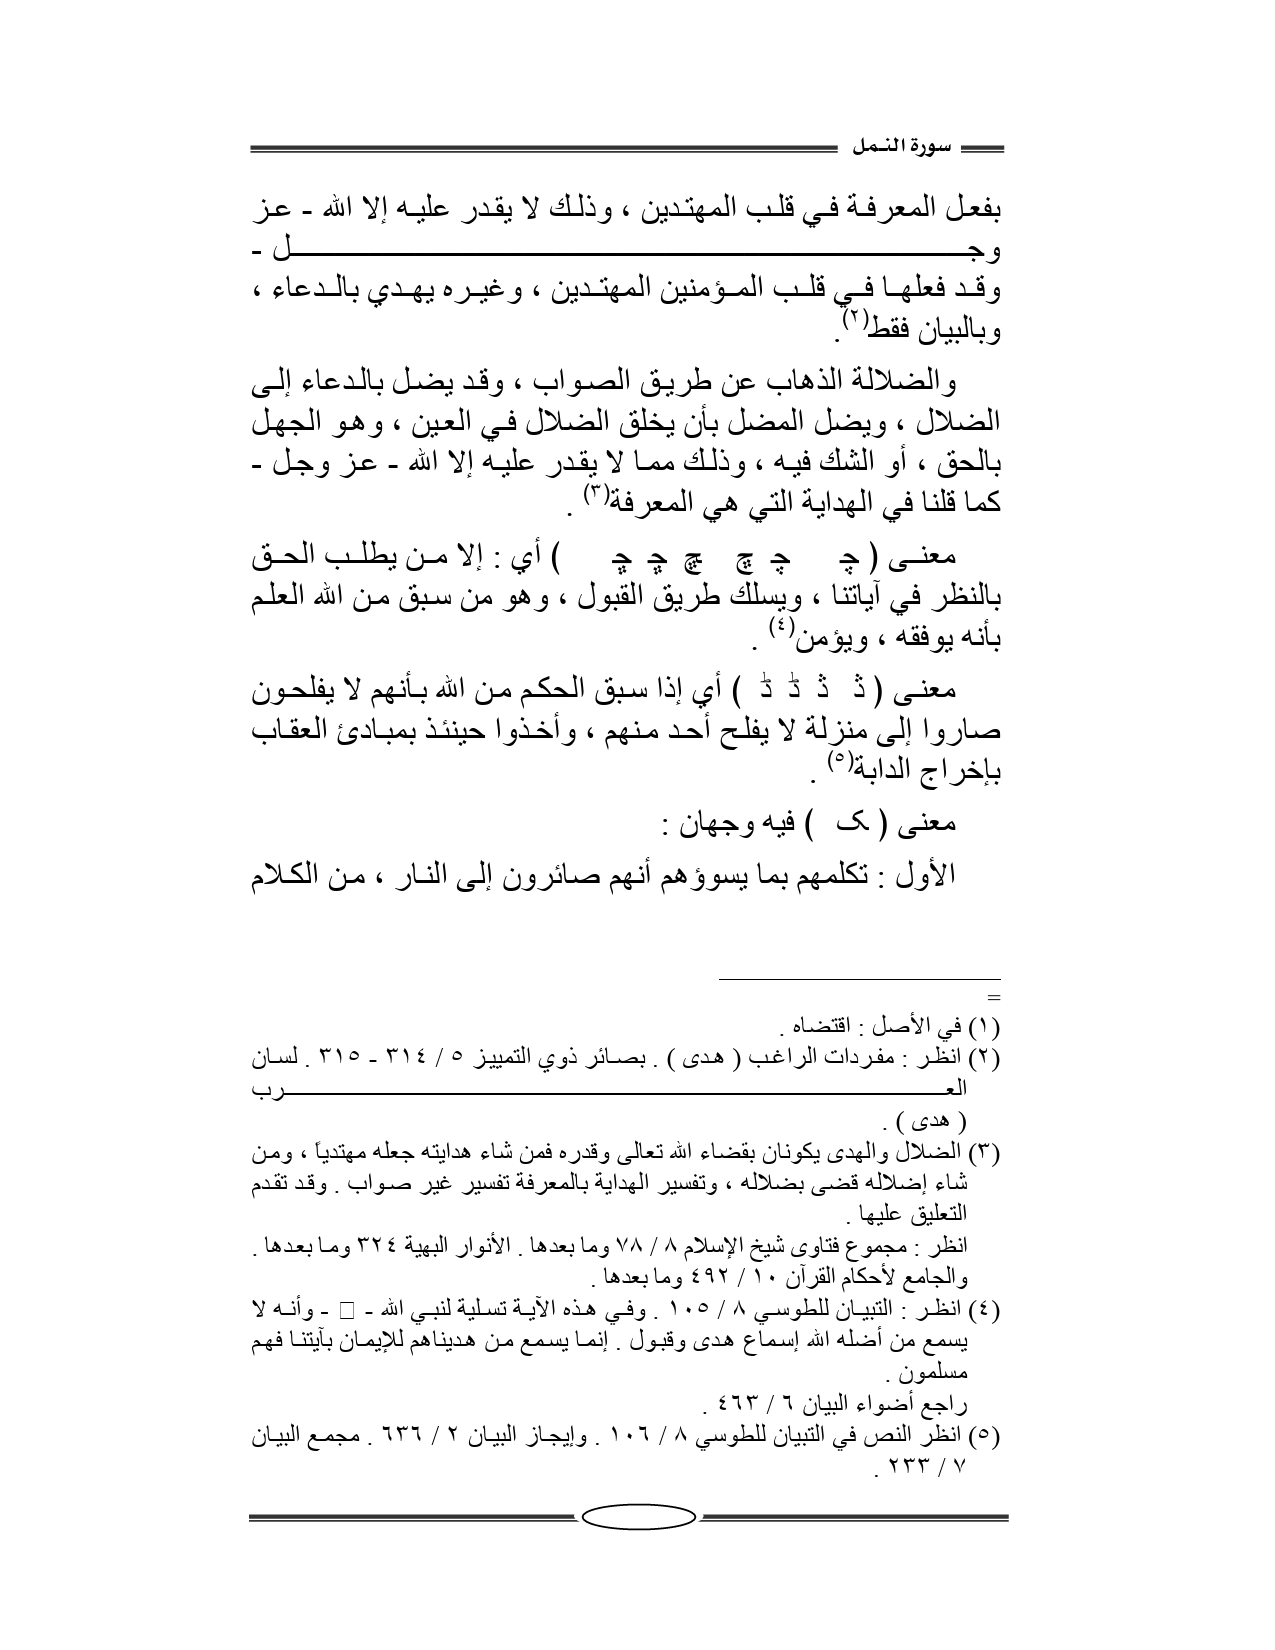 سورة النمل
بفعل المعرفة في قلب المهتدين ، وذلك لا يقدر عليه إلا الله - عز
وجل -
وقد فعلها في قلب المؤمنين المهتدين ، وغيره يهدي بالدعاء ،
وبالبيان فقط(٢).
والضلالة الذهاب عن طريق الصواب ، وقد يضل بالدعاء إلى
الضلال ، ويضل المضل بأن يخلق الضلال في العين ، وهو الجهل
بالحق ، أو الشك فيه ، وذلك مما لا يقدر عليه إلا الله - عز وجل -
كما قلنا في الهداية التي هي المعرفة(٣) .
معنى ( ﭴ ﭵ ﭶ ﭷ ﭸ ﭹ ) أي : إلا من يطلب الحق
بالنظر في آياتنا ، ويسلك طريق القبول ، وهو من سبق من الله العلم
بأنه يوفقه ، ويؤمن(٤) .
معنى ( ﮆ ﮇ ﮈ ﮉ ) أي إذا سبق الحكم من الله بأنهم لا يفلحون
صاروا إلى منزلة لا يفلح أحد منهم ، وأخذوا حينئذ بمبادئ العقاب
بإخراج الدابة(٥) .
معنى ( ﮎ ) فيه وجهان :
الأول : تكلمهم بما يسوؤهم أنهم صائرون إلى النار ، من الكلام
=
(١) في الأصل : اقتضاه .
(٢) انظر : مفردات الراغب ( هدى ) . بصائر ذوي التمييز ٥ / ٣١٤ - ٣١٥ . لسان
العرب
( هدى ) .
(٣) الضلال والهدى يكونان بقضاء الله تعالى وقدره فمن شاء هدايته جعله مهتدياً ، ومن
شاء إضلاله قضى بضلاله ، وتفسير الهداية بالمعرفة تفسير غير صواب . وقد تقدم
التعليق عليها .
انظر : مجموع فتاوى شيخ الإسلام ٨ / ٧٨ وما بعدها . الأنوار البهية ٣٢٤ وما بعدها .
والجامع لأحكام القرآن ١٠ / ٤٩٢ وما بعدها .
(٤) انظر : التبيان للطوسي ٨ / ١٠٥ . وفي هذه الآية تسلية لنبي الله - - وأنه لا
يسمع من أضله الله إسماع هدى وقبول . إنما يسمع من هديناهم للإيمان بآيتنا فهم
مسلمون .
راجع أضواء البيان ٦ / ٤٦٣ .
(٥) انظر النص في التبيان للطوسي ٨ / ١٠٦ . وإيجاز البيان ٢ / ٦٣٦ . مجمع البيان
٧ / ٢٣٣ .